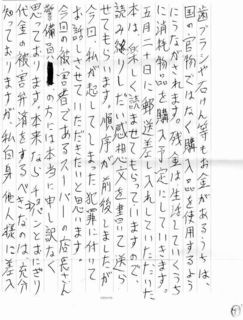 歯ブラシや石けん等もお金があるうちは、
国の官物ではなく購入品を使用するよう
にうながされます。残金は生活していくうち
に消耗物品を購入予定にしていきます。
五月二十日に郵送差し入れしていただいた
本は楽しく読ませてもらっていますので、
読み終りしだい感想文を書いて送ら
せてもらいます。順序が前後しましたが
今回、私が起こしてしまった犯罪に付いて
お話させていただきたいと思います。
今回の被害者であるスーパーの店長さん
警備員の方には本当に申し訳なく
思っております。本来ならチャーハンとおにぎり
代金の被害弁済をするべきなのは充分
思っておりますが、私自身、他人様に差入